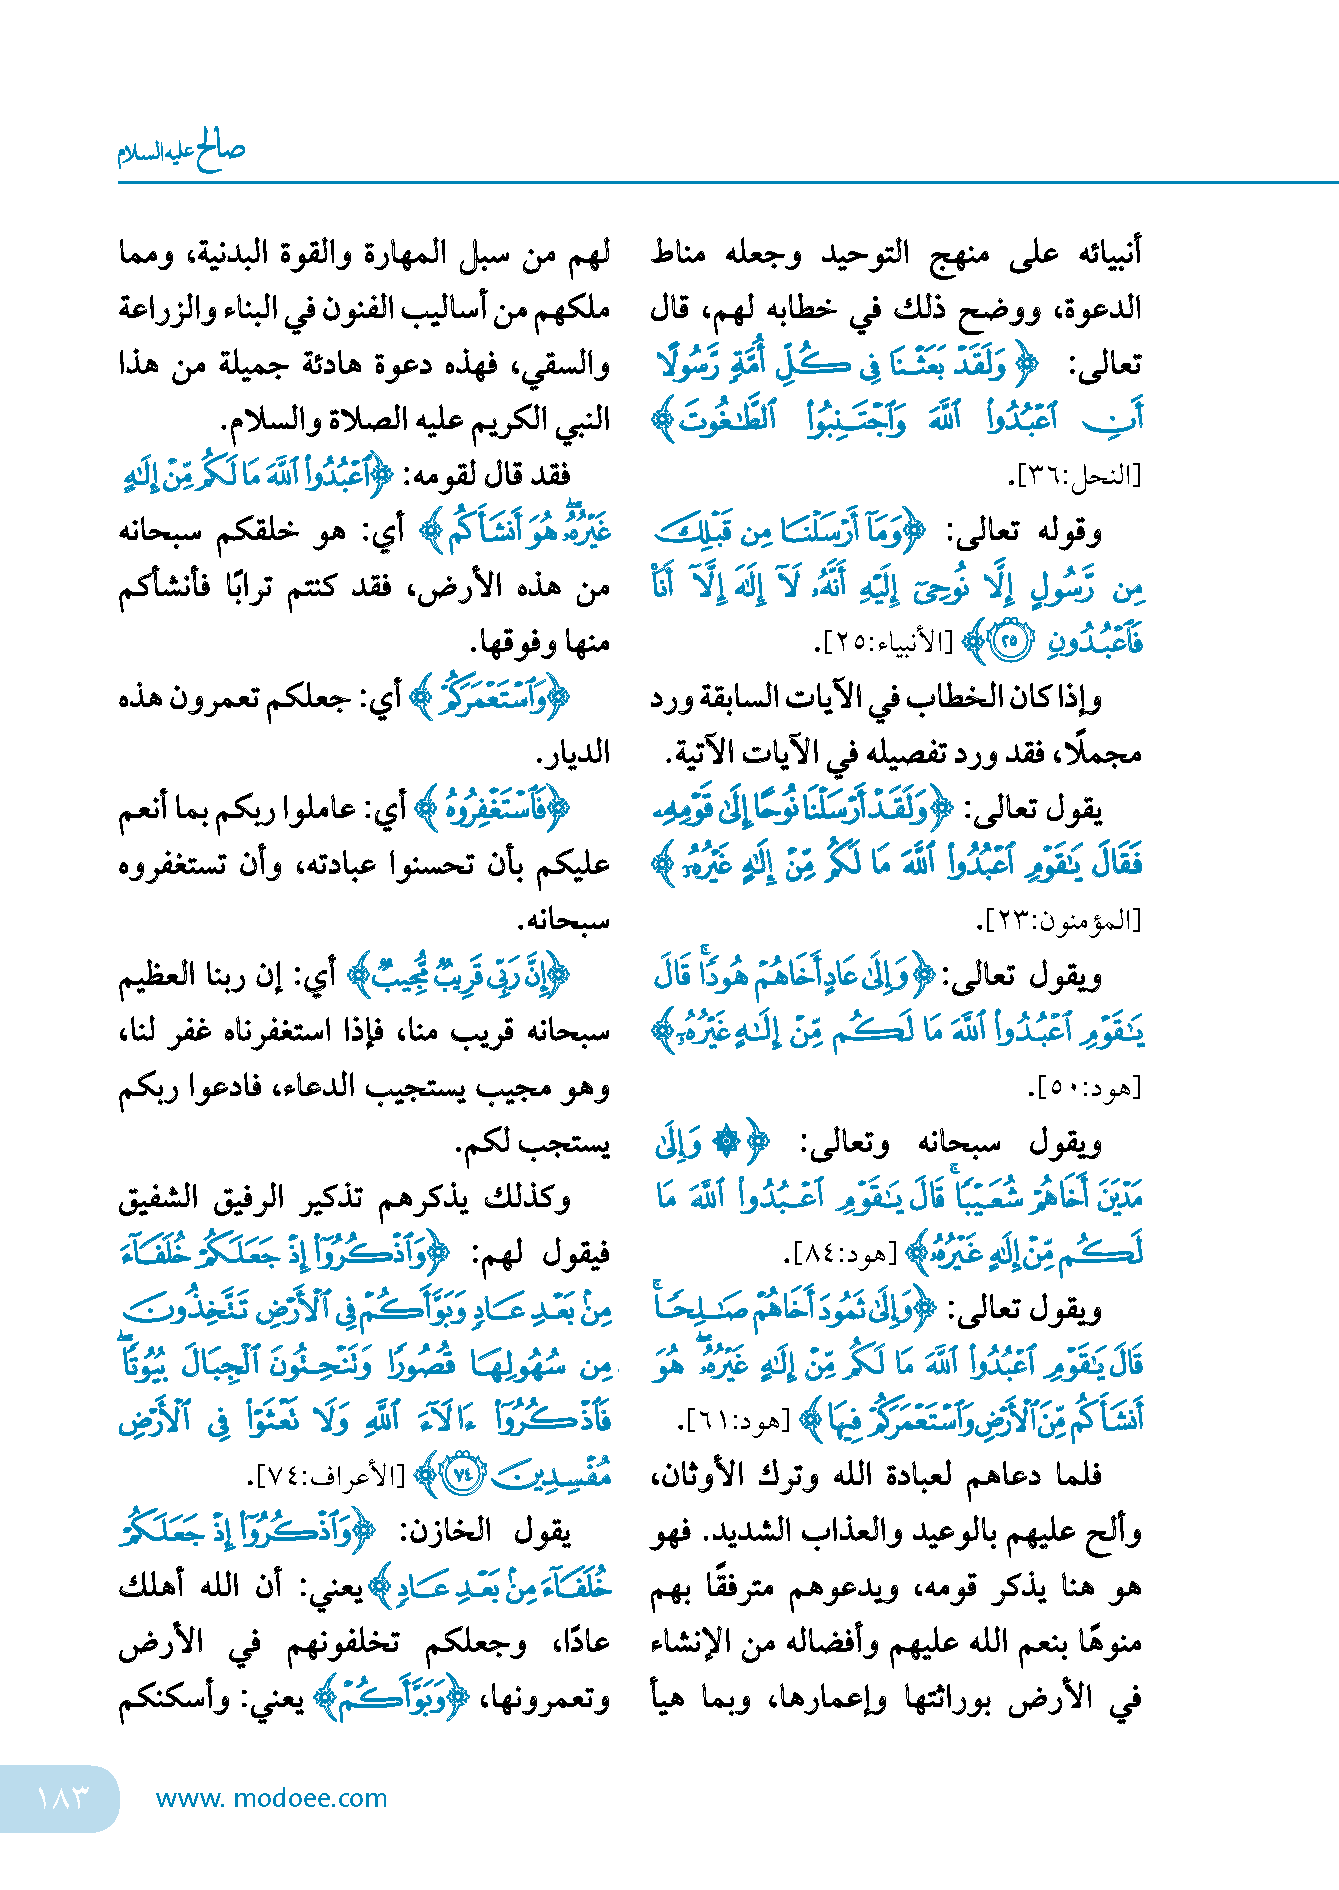 صالح عليه السلام
أنبيائه على منهج التوحيد وجعله مناط
الدعوة، ووضح ذلك في خطابه لهم، قال
تعالى: ﴿وَلَقَدْ بَعَثْنَا فِي كُلِّ أُمَّةٍ رَّسُولًا
أَنِ ٱعْبُدُواْ ٱللَّهَ وَٱجْتَنِبُواْ ٱلطَّٰغُوتَ﴾
[النحل:٣٦].
وقوله تعالى: ﴿وَمَآ أَرْسَلْنَا مِن قَبْلِكَ
مِن رَّسُولٍ إِلَّا نُوحِىٓ إِلَيْهِ أَنَّهُۥ لَآ إِلَٰهَ إِلَّآ أَنَا۠
فَٱعْبُدُونِ ٢٥﴾ [الأنبياء:٢٥].
وإذا كان الخطاب في الآيات السابقة ورد
مجملًا، فقد ورد تفصيله في الآيات الآتية.
يقول تعالى: ﴿وَلَقَدْ أَرْسَلْنَا نُوحًا إِلَىٰ قَوْمِهِۦ
فَقَالَ يَٰقَوْمِ ٱعْبُدُواْ ٱللَّهَ مَا لَكُم مِّنْ إِلَٰهٍ غَيْرُهُۥٓ﴾
[المؤمنون:٢٣].
ويقول تعالى: ﴿وَإِلَىٰ عَادٍ أَخَاهُمْ هُودًا ۚ قَالَ
يَٰقَوْمِ ٱعْبُدُواْ ٱللَّهَ مَا لَكُم مِّنْ إِلَٰهٍ غَيْرُهُۥٓ﴾
[هود:٥٠].
ويقول سبحانه وتعالى: ﴿۞ وَإِلَىٰ
مَدْيَنَ أَخَاهُمْ شُعَيْبًا ۚ قَالَ يَٰقَوْمِ ٱعْبُدُواْ ٱللَّهَ مَا
لَكُم مِّنْ إِلَٰهٍ غَيْرُهُۥ﴾ [هود:٨٤].
ويقول تعالى: ﴿وَإِلَىٰ ثَمُودَ أَخَاهُمْ صَٰلِحًا ۚ
قَالَ يَٰقَوْمِ ٱعْبُدُواْ ٱللَّهَ مَا لَكُم مِّنْ إِلَٰهٍ غَيْرُهُۥ ۖ هُوَ
أَنشَأَكُم مِّنَ ٱلْأَرْضِ وَٱسْتَعْمَرَكُمْ فِيهَا﴾ [هود:٦١].
فلما دعاهم لعبادة الله وترك الأوثان،
وألح عليهم بالوعيد والعذاب الشديد. فهو
هو هنا يذكر قومه، ويدعوهم مترفقًا بهم
منوهًا بنعم الله عليهم وأفضاله من الإنشاء
في الأرض بوراثتها وإعمارها، وبما هيأ
لهم من سبل المهارة والقوة البدنية، ومما
ملكهم من أساليب الفنون في البناء والزراعة
والسقي، فهذه دعوة هادئة جميلة من هذا
النبي الكريم عليه الصلاة والسلام.
فقد قال لقومه: ﴿ٱعْبُدُواْ ٱللَّهَ مَا لَكُم مِّنْ إِلَٰهٍ
غَيْرُهُۥ ۖ هُوَ أَنشَأَكُم﴾ أي: هو خلقكم سبحانه
من هذه الأرض، فقد كنتم ترابًا فأنشأكم
منها وفوقها.
﴿وَٱسْتَعْمَرَكُمْ﴾ أي: جعلكم تعمرون هذه
الديار.
﴿فَٱسْتَغْفِرُوهُ﴾ أي: عاملوا ربكم بما أنعم
عليكم بأن تحسنوا عبادته، وأن تستغفروه
سبحانه.
﴿إِنَّ رَبِّى قَرِيبٌ مُّجِيبٌ﴾ أي: إن ربنا العظيم
سبحانه قريب منا، فإذا استغفرناه غفر لنا،
وهو مجيب يستجيب الدعاء، فادعوا ربكم
يستجب لكم.
وكذلك يذكرهم تذكير الرفيق الشفيق
فيقول لهم: ﴿وَٱذْكُرُوٓاْ إِذْ جَعَلَكُمْ خُلَفَآءَ
مِنۢ بَعْدِ عَادٍ وَبَوَّأَكُمْ فِى ٱلْأَرْضِ تَتَّخِذُونَ
مِن سُهُولِهَا قُصُورًا وَتَنْحِتُونَ ٱلْجِبَالَ بُيُوتًا ۖ
فَٱذْكُرُوٓاْ ءَالَآءَ ٱللَّهِ وَلَا تَعْثَوْاْ فِى ٱلْأَرْضِ
مُفْسِدِينَ ٧٤﴾ [الأعراف:٧٤].
يقول الخازن: ﴿وَٱذْكُرُوٓاْ إِذْ جَعَلَكُمْ
خُلَفَآءَ مِنۢ بَعْدِ عَادٍ﴾ يعني: أن الله أهلك
عادًا، وجعلكم تخلفونهم في الأرض
وتعمرونها، ﴿وَبَوَّأَكُمْ﴾ يعني: وأسكنكم
www. modoee.com
١٨٣